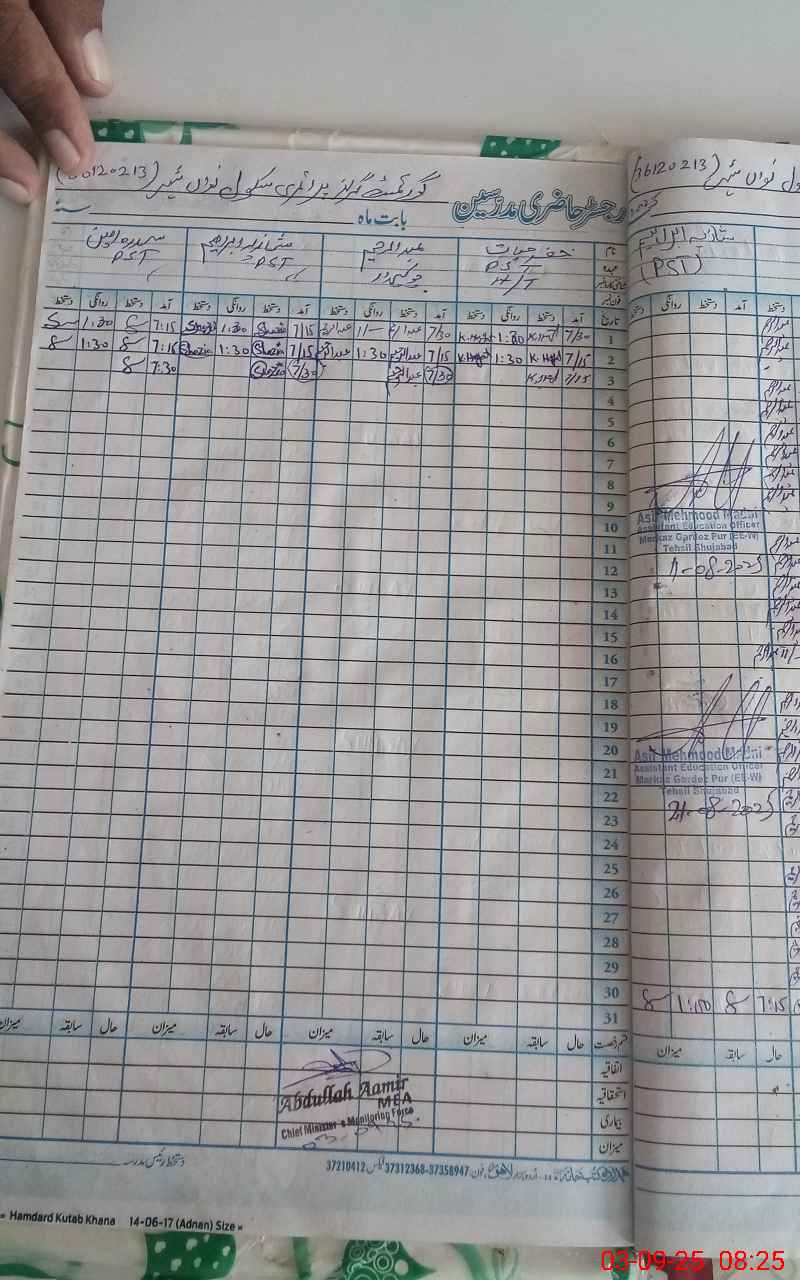 گورنمنٹ گرلز پرائمری سکول نواں شہر (36120213)
رجسٹر حاضری مدرسین بابت ماہ سنہ
نام خضر حیات عبدالرحیم شازیہ ابراہیم سدرہ امین
عہدہ PST چوکیدار PST PST
H/T
تاریخ آمد دستخط روانگی دستخط آمد دستخط روانگی دستخط آمد دستخط روانگی دستخط آمد دستخط روانگی دستخط
1 7/30 K.Hayat 1:30 K.Hayat 7/30 عبدالرحیم 1/- عبدالرحیم 7/15 Shazia 1:30 Shazia 7:15 S 1:30 S
2 7/15 K.Hayat 1:30 K.Hayat 7/15 عبدالرحیم 1:30 عبدالرحیم 7/15 Shazia 1:30 Shazia 7:15 S 1:30 S
3 7/15 K.Hayat 7/30 عبدالرحیم 7/30 Shazia 7:30 S
4
5
6
7
8
9
10
11
12
13
14
15
16
17
18
19
20
21
22
23
24
25
26
27
28
29
30
31
قسم رخصت حال سابقہ میزان حال سابقہ میزان حال سابقہ میزان حال سابقہ میزان
اتفاقیہ
استحقاقیہ
بیماری
میزان
Abdullah Aamir
MEA
Chief Minister's Monitoring Force
دستخط رئیس مدرسہ
کتب خانہ اردو بازار لاہور فون 37312368-37358947 فیکس 37210412
Hamdard Kutab Khana 14-06-17 (Adnan) Size
نواں شہر (36120213)
شازیہ ابراہیم
(PST)
دستخط آمد دستخط روانگی دستخط
Asif Mehmood Madni
Assistant Education Officer
Markaz Gardez Pur (EE-W)
Tehsil Shujabad
11-08-2025
Asif Mehmood Madni
Assistant Education Officer
Markaz Gardez Pur (EE-W)
Tehsil Shujabad
21-08-2025
7:15 S S
حال سابقہ میزان
03-09-25 08:25